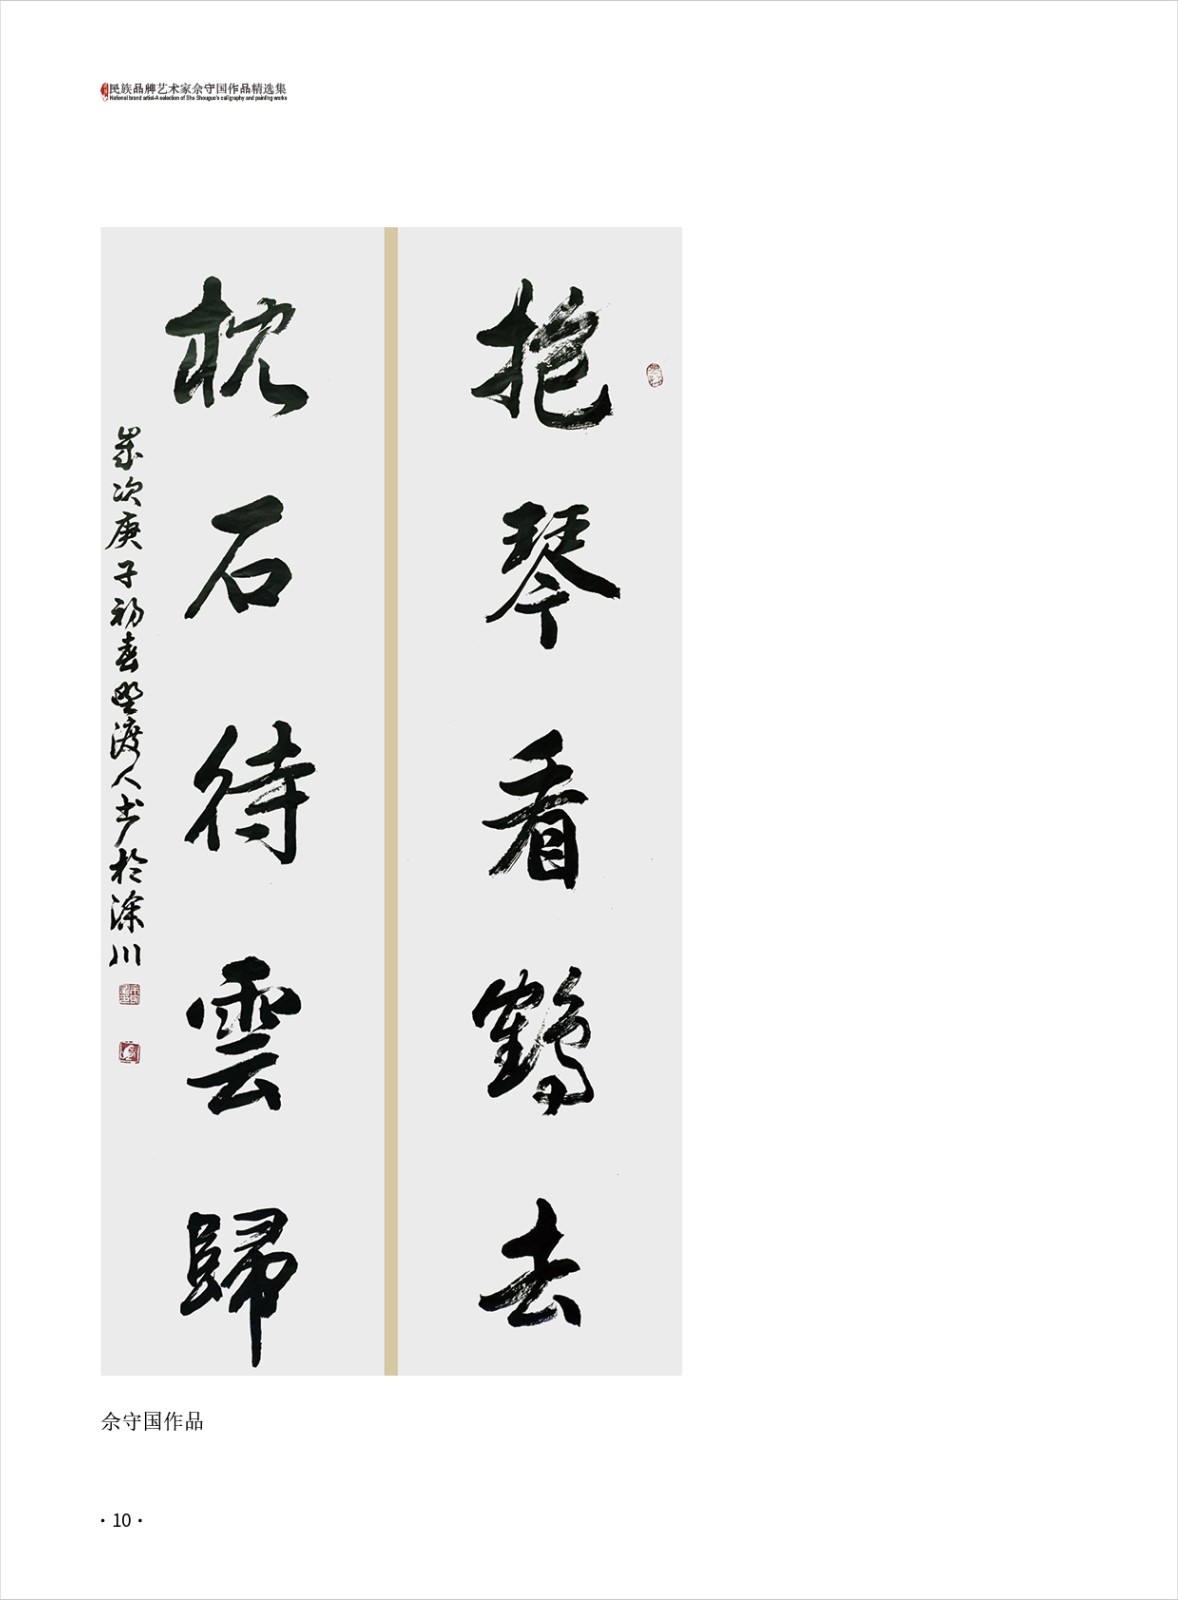 民族品牌艺术家佘守国作品精选集
National brand artist-A selection of She Shouguo's calligraphy and painting works
抱琴看鶴去
枕石待雲歸
歲次庚子初春野渡人书於滁川
佘守国作品
·10·